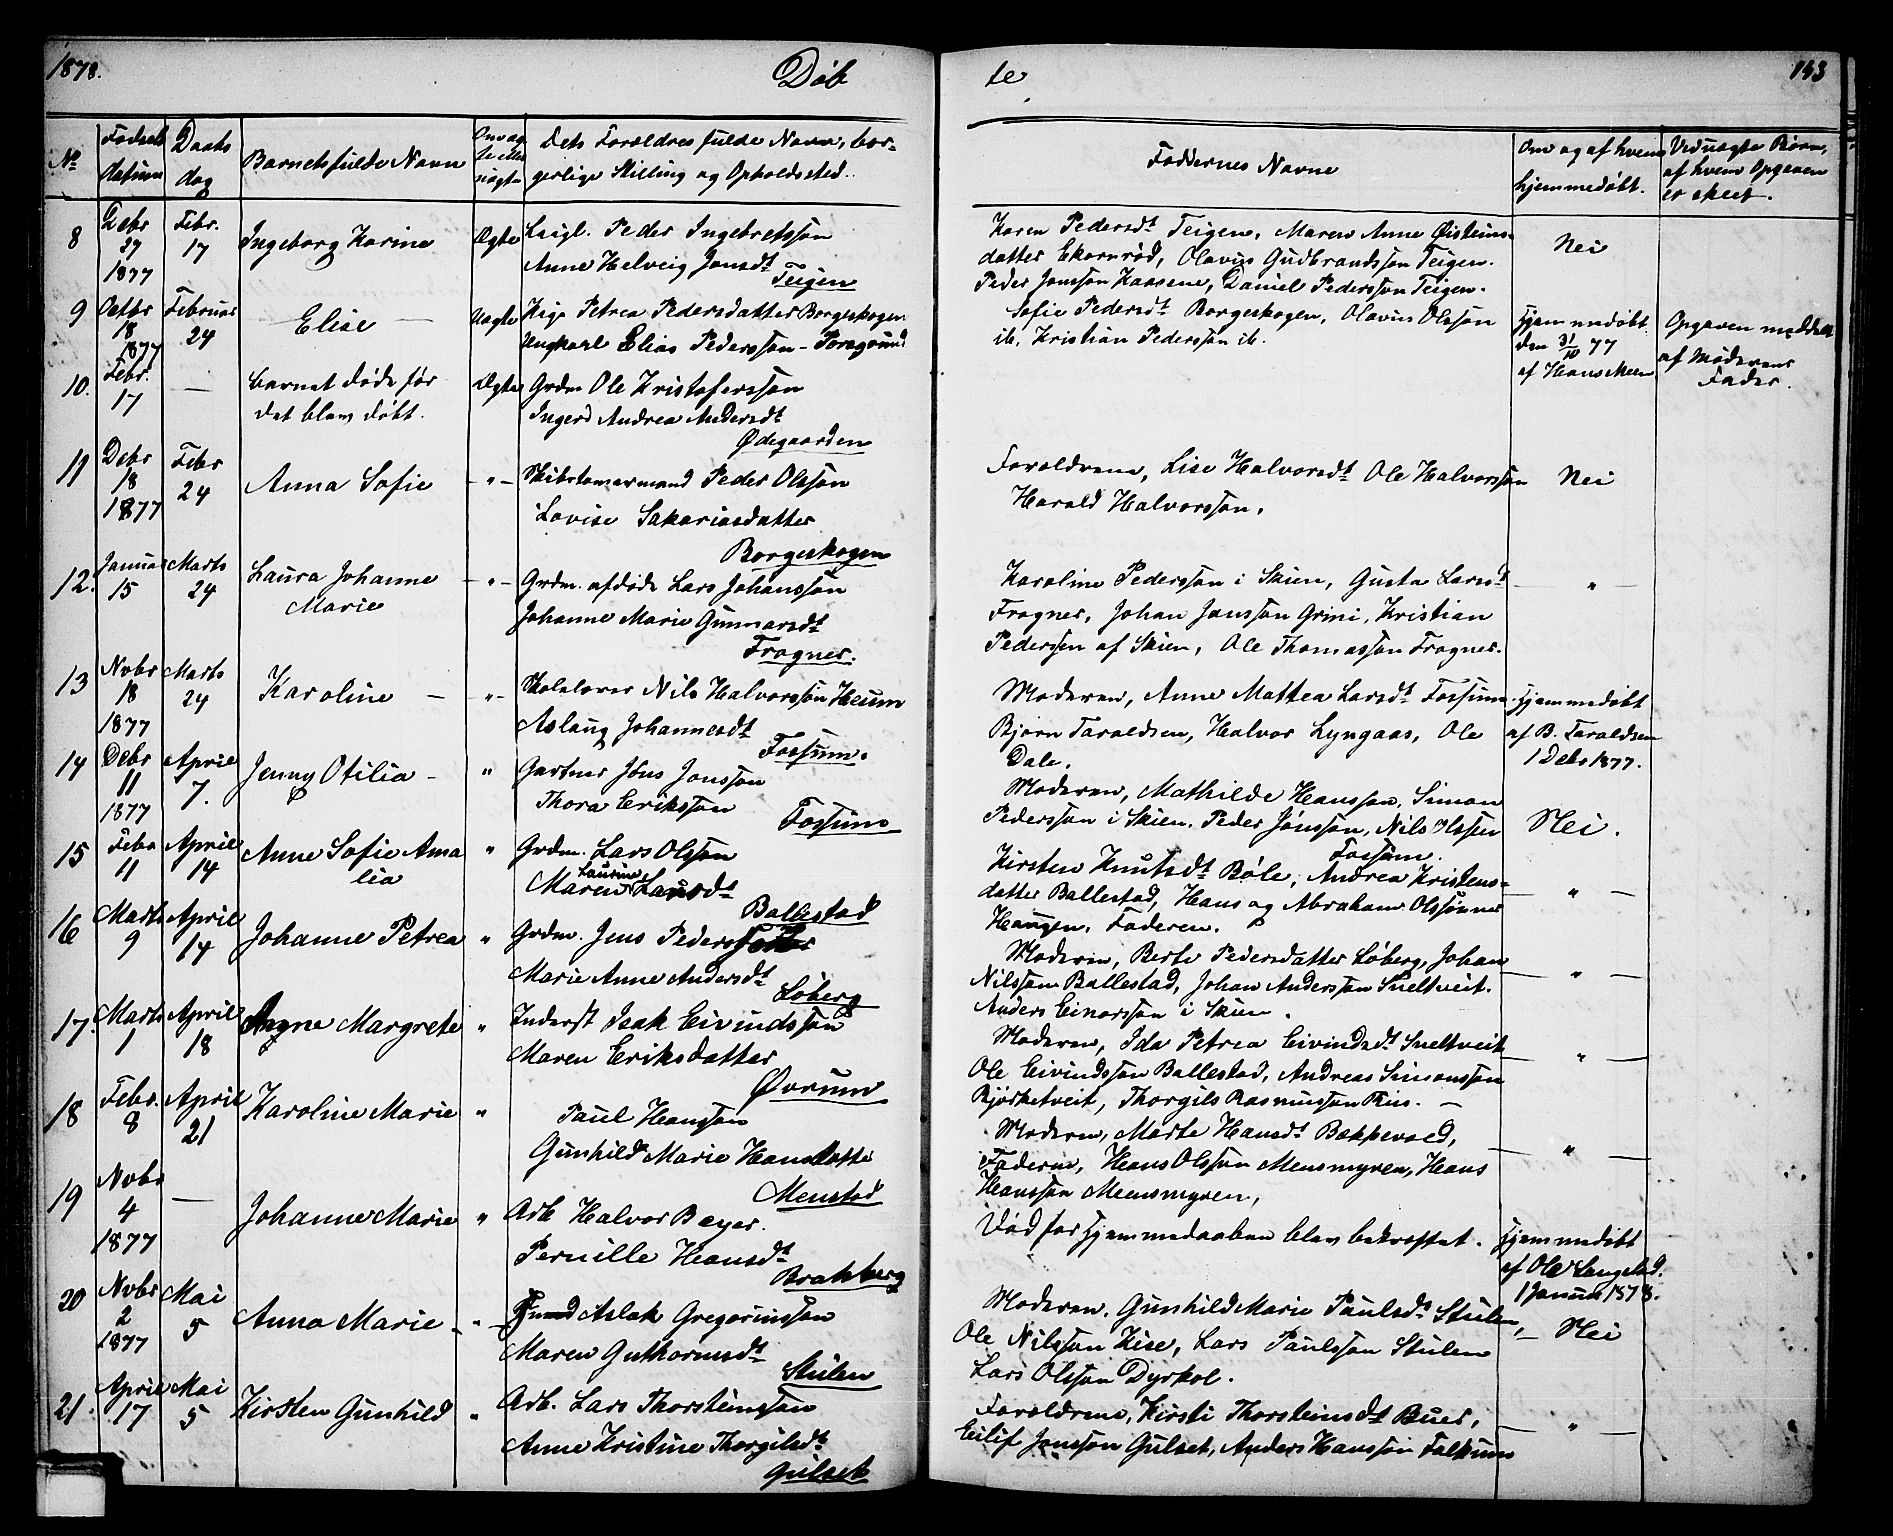 1878.
Døb
te
143
No
Fødsels
datum
Daabs
dag
Barnets fulde Navn
Om æg
te eller
uægte
Dets Forældres fulde Navn, bor-
gerlige Stilling og Opholdssted.
Faddernes Navne
Om og af hvem
hjemmedøbt.
Ved uægte Børn,
af hvem Opgaven
er skeet.
8
Debr
27
1877
Febr.
17
Ingeborg Karine
Ægte
Leigl. Peder Ingebretssøn
Anne Helveig Jonsdt
Teigen
Karen Pedersdt Teigen, Maren Anne Øisteins-
datter Ekornrød, Olavus Gudbrandssøn Teigen.
Peder Jonssøn Kaasene, Daniel Pederssøn Teigen.
Nei
9
Octbr
18
1877
Februar
24
Elise
Uægte
Pige Petrea Pedersdatter Borgeskogen
Ungkarl Elias Pederssøn - Porsgrund
Sofie Pedersdt Borgeskogen, Olavus Olssøn
ib, Kristian Pederssøn ib.
Hjemmedøbt
den 31/10 77
af Hans Meen
Opgaven meddelt
af Moderens
Fader.
10.
Febr.
17
Barnet døde før
det blev døbt.
Ægte
Grdm Ole Kristoferssøn
Ingerd Andrea Andersdt
Ødegaarden
11
Debr
18
1877
Febr
24
Anna Sofie
- " -
Skibstømmermand Peder Olssøn
Lovise Sakariasdatter
Borgeskogen
Forældrene, Lise Halvorsdt Ole Halvorssøn
Harald Halvorssøn.
Nei
12.
Januar
15
Marts
24
Laura Johanne
Marie
- " -
Grdm. afdøde Lars Johanssøn
Johanne Marie Gunnarsdt
Frogner.
Karoline Pederssøn i Skien, Gusta Larsdt
Frogner, Johan Janssøn Grini, Kristian
Pedersen af Skien, Ole Thomassøn Frogner.
"
13
Novbr
18
1877
Marts
24
Karoline
"
Skolelærer Nils Halvorssøn Heum
Aslaug Johannesdt
Fossum.
Moderen, Anne Mattea Larsdt Fossum
Bjørn Taraldsen, Halvor Lyngaas, Ole
Dale.
Hjemmedøbt
af B. Taraldsen
1 Debr 1877.
14
Debr
11
1877
April
7.
Jenny Otilia
"
Gartner Jøns Jonssøn
Thora Erikssøn
Fossum
Moderen, Mathilde Hanssøn, Simon
Pederssøn i Skien. Peder Jónssøn, Nils Olssen
Fossum.
Nei.
15
Febr
11
April
14
Anne Sofie Ama
lia
"
Grdm. Lars Olssøn
Laurine
Maren Larsdt
Ballestad
Kirsten Knutsdt Bøle, Andrea Kristens-
datter Ballestad, Hans og Abraham Olssønner
Haugen, Faderen.
"
16
Marts
9
April
14
Johanne Petrea
"
Grdm. Jens Pederssøn
Marie Anne Andersdt
Løberg
Moderen, Berte Pedersdatter Løberg, Johan
Nilssøn Ballestad, Johan Anderssøn Sneltveit.
Anders Einarssøn i Skien.
"
17.
Marts
1
April
18
Agne Margrete
"
Inderst Isak Eivindssøn
Maren Eriksdatter
Øvrum
Moderen, Ida Petrea Eivindsdt Sneltveit
Ole Eivindssøn Ballestad, Andreas Simonssøn
Bjørketveit, Thorgils Rasmussøn Riis.
"
18
Febr.
8
April
21
Karoline Marie
"
Paul Hanssøn
Gunhild Marie Hansdatter
Menstad
Moderen, Marte Hansdt Bækkevold,
Faderen, Hans Olssøn Mensmyren, Hans
Hanssøn Mensmyren,
"
19
Novbr
4
1877
Johanne Marie
"
Arb Halvor Beyer.
Pernille Hansdt
Brakberg
Død før Hjemmedaaben blev bekræftet.
Hjemmedøbt
af Ole Langstad.
1 Januar 1878.
20
Novbr
2
1877
Mai
5
Anna Marie
"
Aslak Gregoriussøn
Maren Guthormsdt
Stulen
Moderen. Gunhild Marie Paulsdt Stulen,
Ole Nilssøn Kise, Lars Paulssøn Stulen
Lars Olssøn Dyrkol.
Nei
21.
April
17
Mai
5
Kirsten Gunhild
"
Arb. Lars Thorsteinssøn
Anne Kristine Thorgilsdt
Gulset
Forældrene, Kirsti Thorsteinsdt Buer,
Eilif Janssøn Gulset, Anders Hanssøn Falkum
"